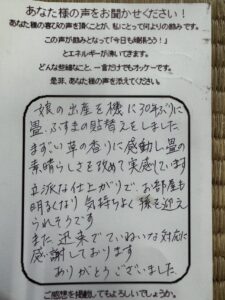 あなた様の声をお聞かせください！
あなた様の喜びの声を頂くことが、私にとって何よりの励みです。
この声が励みとなって「今日も頑張ろう！」
とエネルギーが沸いてきます。
どんな些細なこと、一言だけでもオッケーです。
是非、あなた様の声を添えてください。
娘の出産を機に30年ぶりに
畳、ふすまの貼替えをしました
まずい草の香りに感動し畳の
素晴らしさを改めて実感しています
立派な仕上がりで、お部屋も
明るくなり気持ちよく孫を迎え
られそうです
また迅速でていねいな対応に
感謝しております
ありがとうございました
ご感想を掲載してもよろしいでしょうか。